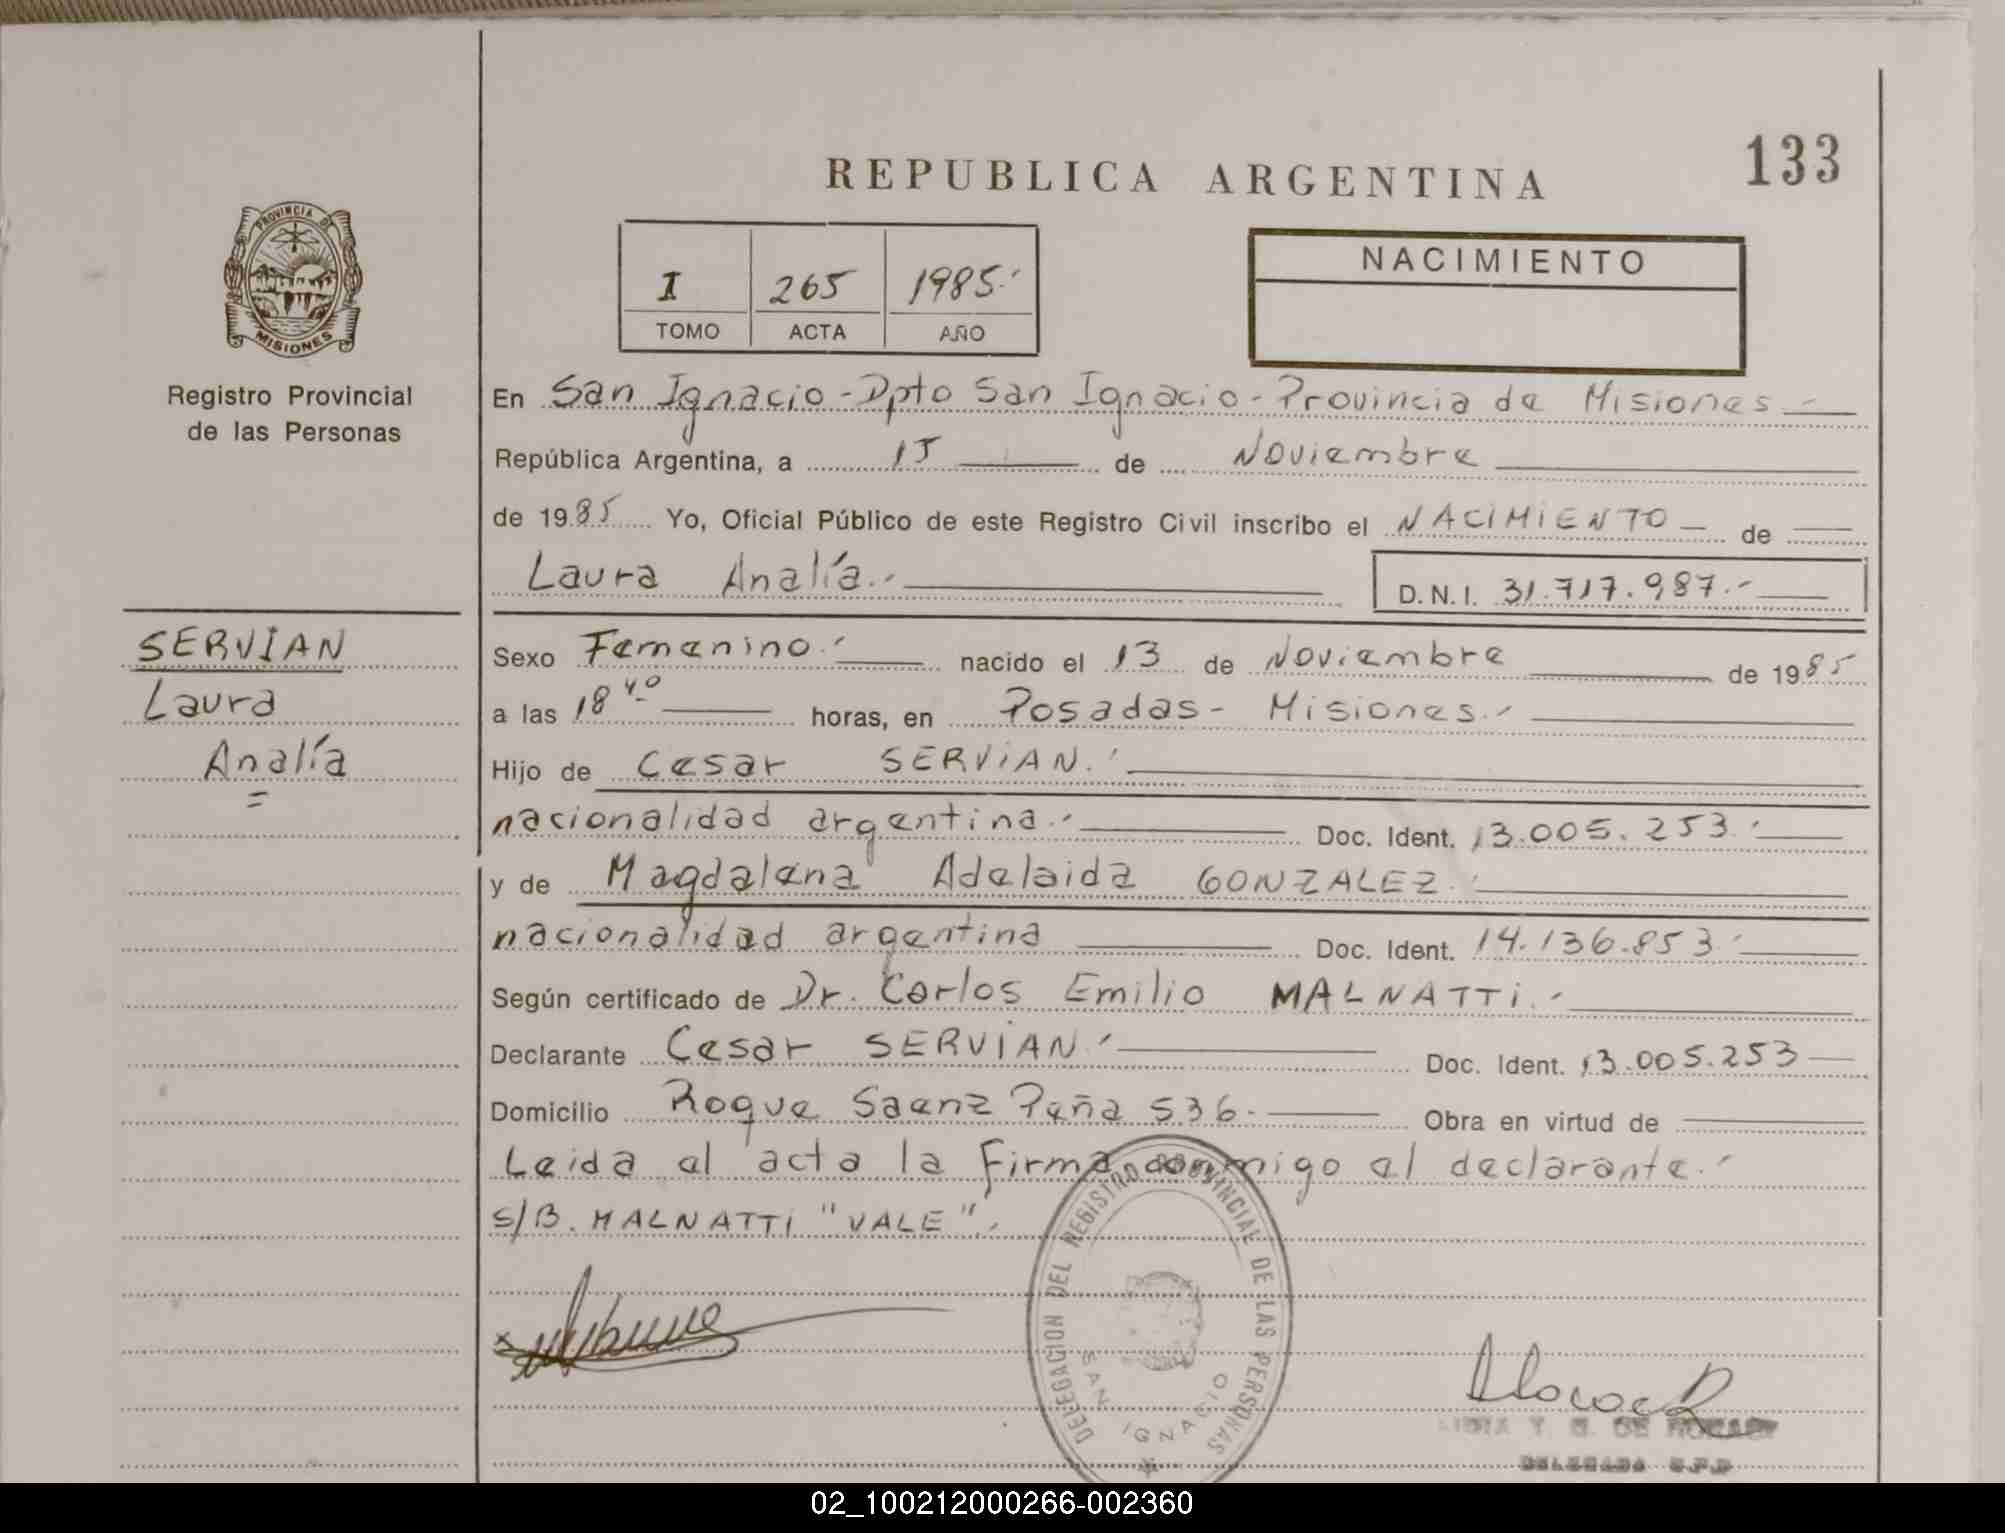 133
REPUBLICA ARGENTINA
PROVINCIA D
MISIONES
Registro Provincial
de las Personas
I 265 1985.-
TOMO ACTA AÑO
NACIMIENTO
En San Ignacio-Dpto San Ignacio-Provincia de Misiones -
República Argentina, a 15 de Noviembre
de 1985 Yo, Oficial Público de este Registro Civil inscribo el NACIMIENTO de
Laura Analía.-
D.N.I. 31.717.987.-
SERVIAN
Laura
Analía
=
Sexo Femenino.- nacido el 13 de Noviembre de 1985
a las 18 40 horas, en Posadas - Misiones.-
Hijo de Cesar SERVIAN.-
nacionalidad argentina.- Doc. Ident. 13.005.253.-
y de Magdalena Adelaida GONZALEZ.-
nacionalidad argentina Doc. Ident. 14.136.853.-
Según certificado de Dr. Carlos Emilio MALNATTI.-
Declarante Cesar SERVIAN.- Doc. Ident. 13.005.253
Domicilio Roque Saenz Peña 536.- Obra en virtud de
Leida el acta la firma conmigo el declarante.-
S/B. MALNATTI "VALE".
DELEGACION DEL REGISTRO PROVINCIAL DE LAS PERSONAS
SAN IGNACIO
x
LIDIA Y. G. DE
DELEGADA R.P.P
02_100212000266-002360